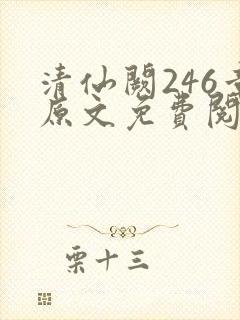 清仙阙246
原文免费阅
栗十三